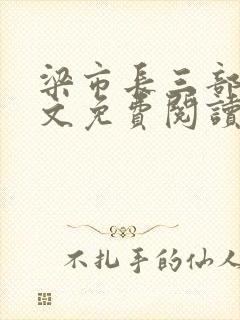 梁市长三部
文免費閱讀
不扎手的仙人